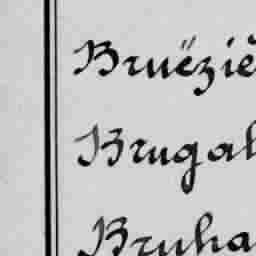 Bruëziè
Brugal
Bruha